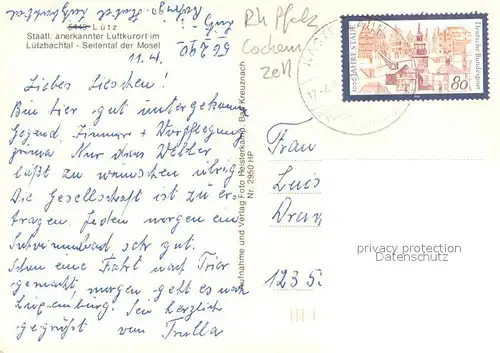 5449 Lütz
Staatl. anerkannter Luftkurort im
Lützbachtal - Seitental der Mosel
11.4.
56290
Lütz
Rh Pfalz
Cochem
Zell
Liebes Lieschen!
Bin hier gut untergekommen
Gegend, Zimmer + Verpflegung
prima. Nur das Wetter
läßt zu wünschen übrig.
Die Gesellschaft ist zu er-
tragen. Jeden morgen ein
Schwimmbad sehr gut.
Schon eine Fahrt nach Trier
gemacht, morgen geht es nach
Luxemburg. Sei herzlich
gegrüßt von Trulla
Aufnahme und Verlag Foto Heisterkamp, Bad Kreuznach
Nr. 2950 HP
Deutsche Bundespost
80
Frau
Luis
Dran
1235
privacy protection
Datenschutz